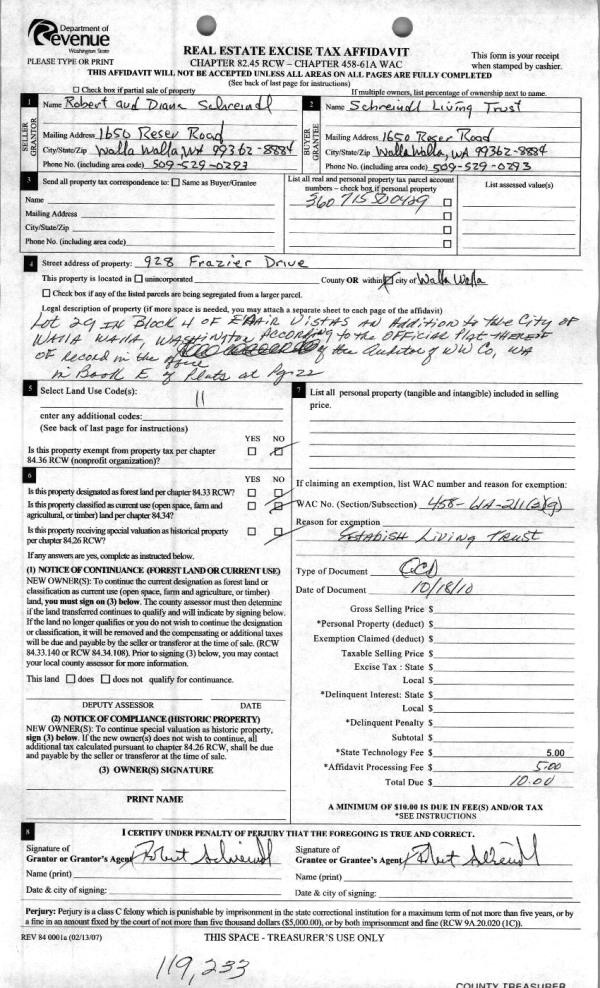 Department of
Revenue
Washington State
PLEASE TYPE OR PRINT
REAL ESTATE EXCISE TAX AFFIDAVIT
CHAPTER 82.45 RCW – CHAPTER 458-61A WAC
This form is your receipt
when stamped by cashier.
THIS AFFIDAVIT WILL NOT BE ACCEPTED UNLESS ALL AREAS ON ALL PAGES ARE FULLY COMPLETED
(See back of last page for instructions)
☐ Check box if partial sale of property
If multiple owners, list percentage of ownership next to name.
1
SELLER
GRANTOR
Name Robert and Diana Schreindl
Mailing Address 1650 Reser Road
City/State/Zip Walla Walla, WA 99362-8884
Phone No. (including area code) 509-529-0293
2
BUYER
GRANTEE
Name Schreindl Living Trust
Mailing Address 1650 Reser Road
City/State/Zip Walla Walla, WA 99362-8884
Phone No. (including area code) 509-529-0293
3
Send all property tax correspondence to: ☐ Same as Buyer/Grantee
Name
Mailing Address
City/State/Zip
Phone No. (including area code)
List all real and personal property tax parcel account
numbers – check box if personal property
360715500429
List assessed value(s)
4
Street address of property: 928 Frazier Drive
This property is located in ☐ unincorporated County OR within ☒ city of Walla Walla
☐ Check box if any of the listed parcels are being segregated from a larger parcel.
Legal description of property (if more space is needed, you may attach a separate sheet to each page of the affidavit)
Lot 29 in Block 4 of Vistas an Addition to the City of
Walla Walla, Washington According to the Official Plat thereof
of record in the office of the Auditor of WW Co, WA
in Book E of Plats at Pg. 22
5
Select Land Use Code(s):
11
enter any additional codes:
(See back of last page for instructions)
YES NO
Is this property exempt from property tax per chapter
84.36 RCW (nonprofit organization)?
6
YES NO
Is this property designated as forest land per chapter 84.33 RCW?
Is this property classified as current use (open space, farm and
agricultural, or timber) land per chapter 84.34?
Is this property receiving special valuation as historical property
per chapter 84.26 RCW?
If any answers are yes, complete as instructed below.
(1) NOTICE OF CONTINUANCE (FOREST LAND OR CURRENT USE)
NEW OWNER(S): To continue the current designation as forest land or
classification as current use (open space, farm and agriculture, or timber)
land, you must sign on (3) below. The county assessor must then determine
if the land transferred continues to qualify and will indicate by signing below.
If the land no longer qualifies or you do not wish to continue the designation
or classification, it will be removed and the compensating or additional taxes
will be due and payable by the seller or transferor at the time of sale. (RCW
84.33.140 or RCW 84.34.108). Prior to signing (3) below, you may contact
your local county assessor for more information.
This land ☐ does ☐ does not qualify for continuance.
DEPUTY ASSESSOR DATE
(2) NOTICE OF COMPLIANCE (HISTORIC PROPERTY)
NEW OWNER(S): To continue special valuation as historic property,
sign (3) below. If the new owner(s) does not wish to continue, all
additional tax calculated pursuant to chapter 84.26 RCW, shall be due
and payable by the seller or transferor at the time of sale.
(3) OWNER(S) SIGNATURE
PRINT NAME
7
List all personal property (tangible and intangible) included in selling
price.
If claiming an exemption, list WAC number and reason for exemption:
WAC No. (Section/Subsection) 458-61A-211(2)(g)
Reason for exemption
Establish Living Trust
Type of Document QCD
Date of Document 10/18/10
Gross Selling Price $
*Personal Property (deduct) $
Exemption Claimed (deduct) $
Taxable Selling Price $
Excise Tax : State $
Local $
*Delinquent Interest: State $
Local $
*Delinquent Penalty $
Subtotal $
*State Technology Fee $ 5.00
*Affidavit Processing Fee $ 5.00
Total Due $ 10.00
A MINIMUM OF $10.00 IS DUE IN FEE(S) AND/OR TAX
*SEE INSTRUCTIONS
8
I CERTIFY UNDER PENALTY OF PERJURY THAT THE FOREGOING IS TRUE AND CORRECT.
Signature of
Grantor or Grantor's Agent Robert Schreindl
Name (print)
Date & city of signing:
Signature of
Grantee or Grantee's Agent Robert Schreindl
Name (print)
Date & city of signing:
Perjury: Perjury is a class C felony which is punishable by imprisonment in the state correctional institution for a maximum term of not more than five years, or by
a fine in an amount fixed by the court of not more than five thousand dollars ($5,000.00), or by both imprisonment and fine (RCW 9A.20.020 (1C)).
REV 84 0001a (02/13/07)
THIS SPACE - TREASURER'S USE ONLY
119,233
COUNTY TREASURER